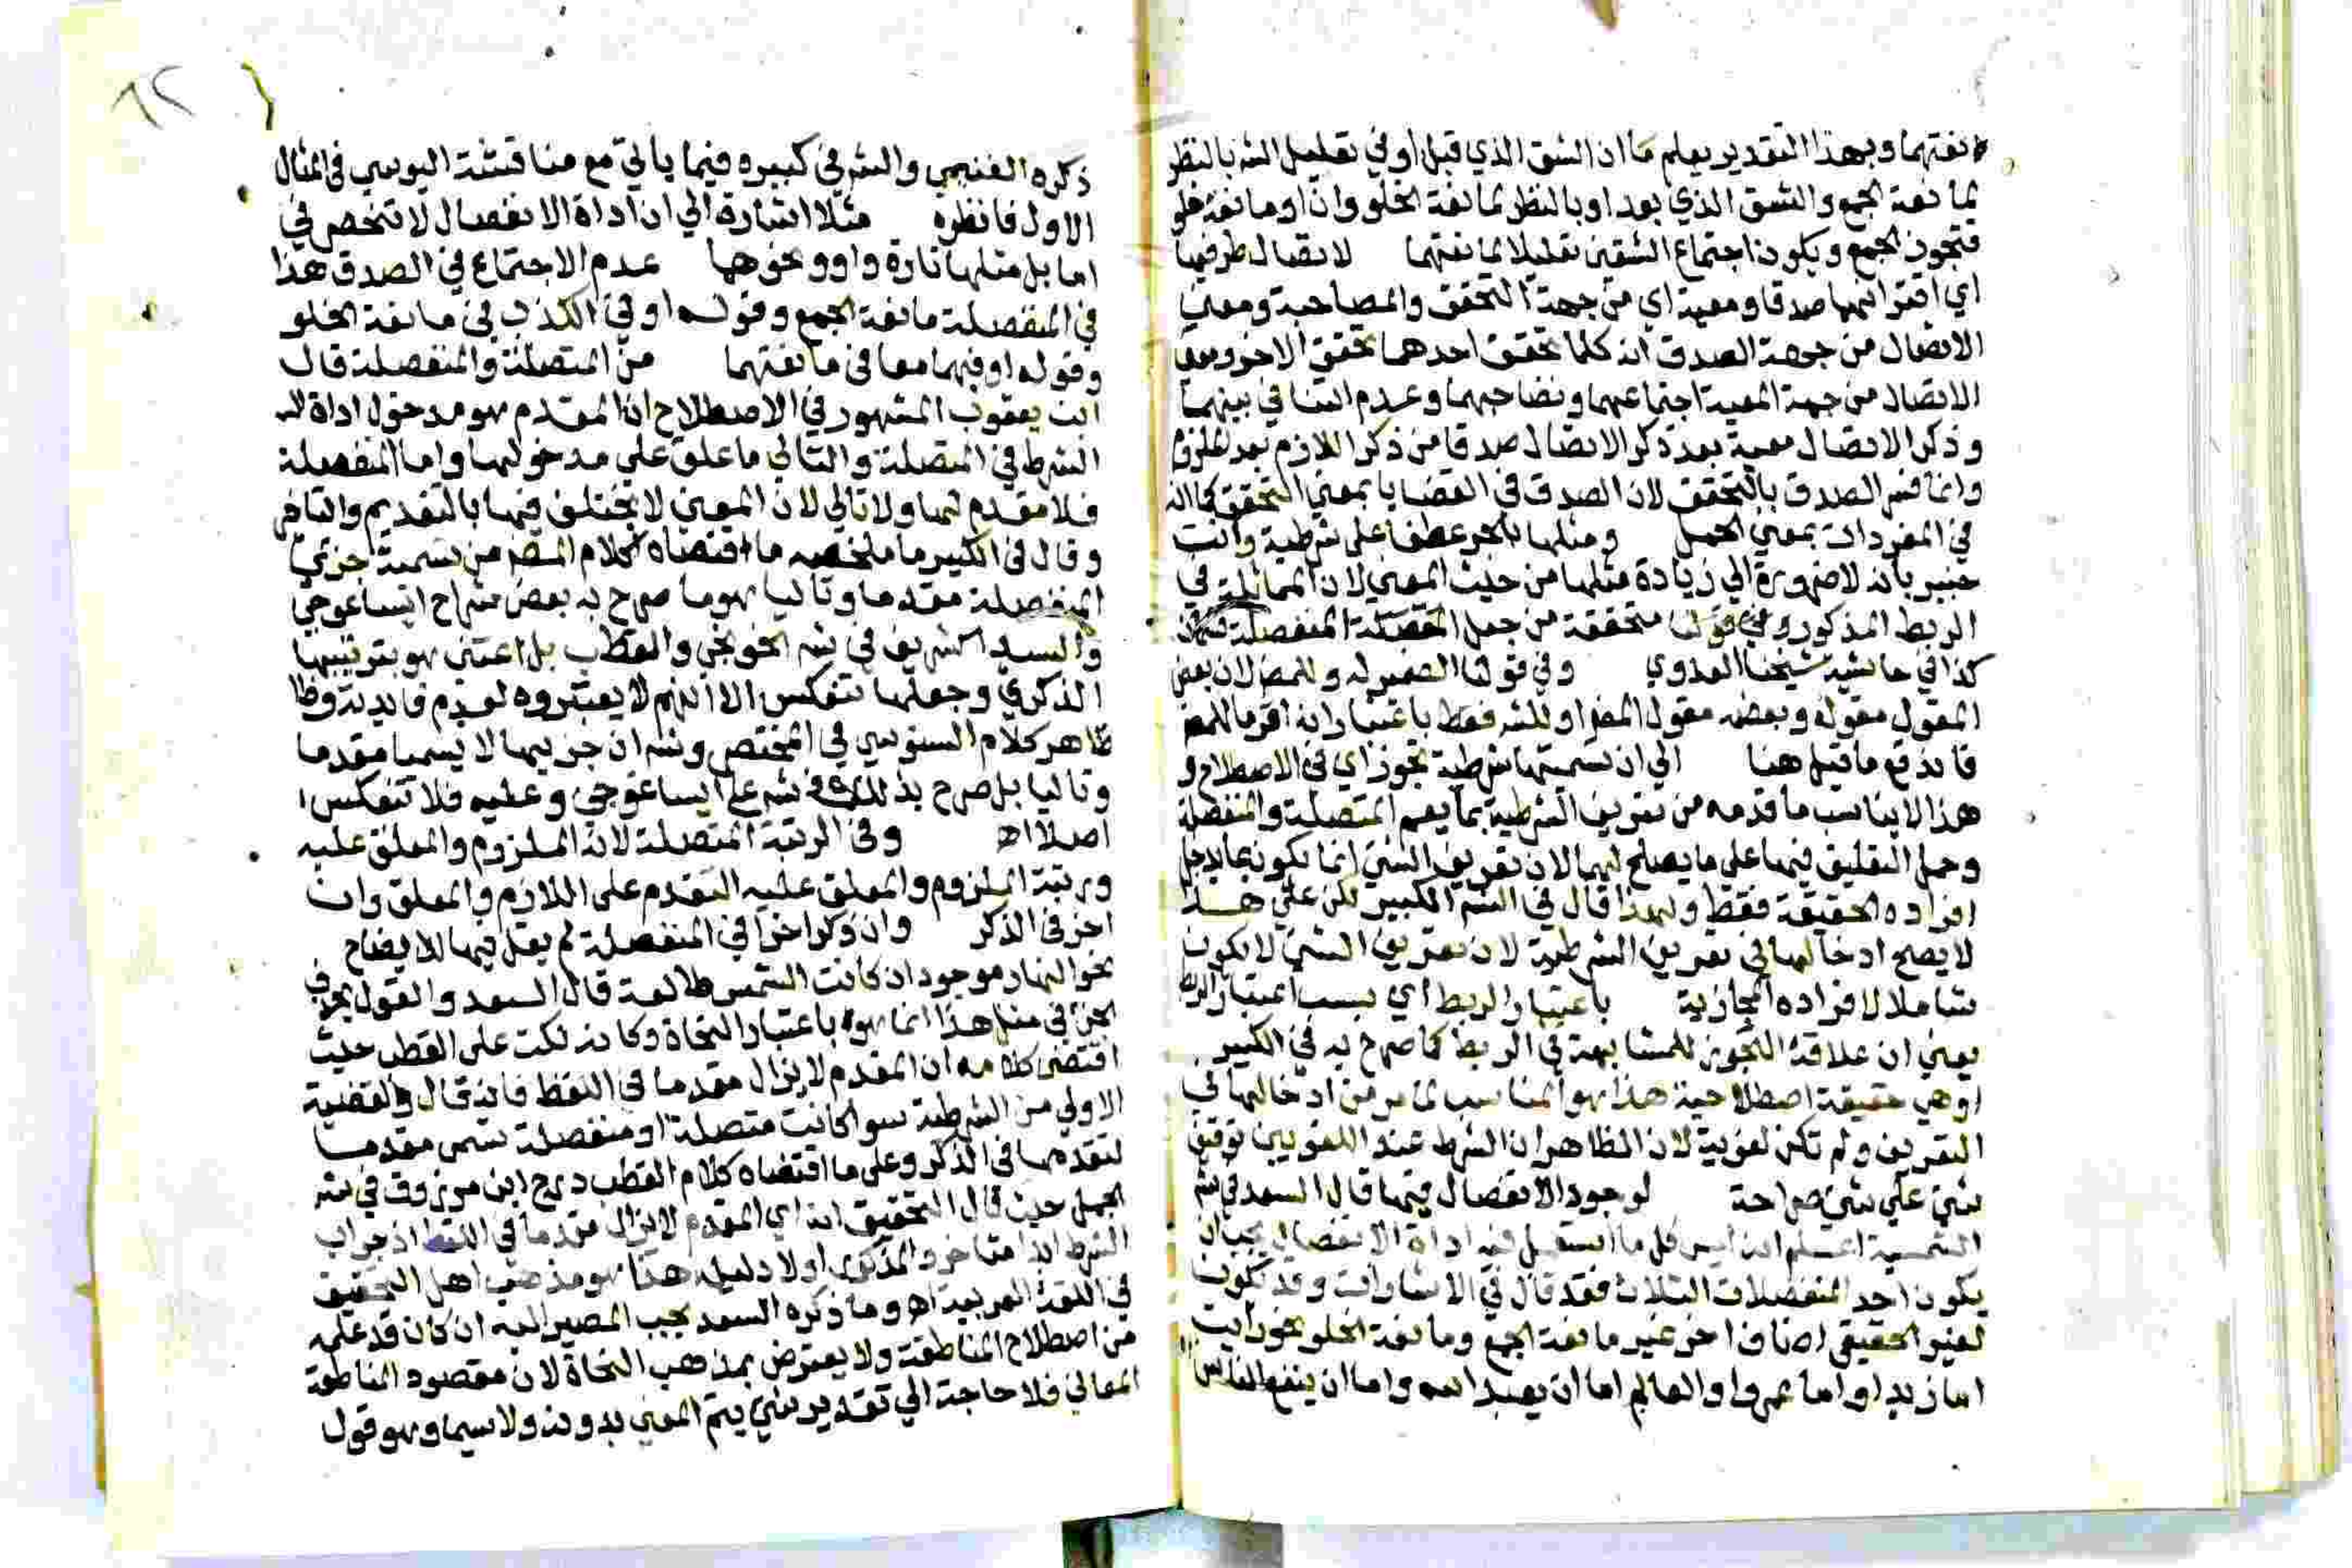 نعتهما وبهذا التقدير يعلم ما ان الشق الذي قبل او في تعليل الشه بالنظر
لمانعة الجمع والشق الذي بعد او بالنظر لمانعة الخلو وان او مانعة خلو
فتجوز الجمع ويكون اجتماع الشقين تعليلا لمانعتهما لاتصال طرفيها
اي اقترانهما صدقا ومعية اي من جهة التحقق والمصاحبة ومعنى
الاتصال من جهة الصدق انه كلما تحقق احدهما تحقق الاخر ومعنى
الاتصال من جهة المعية اجتماعهما وتصاحبهما وعدم التنافي بينهما
وذكر الاتصال معية بعد ذكر الاتصال صدقا من ذكر اللازم بعد الملزوم
وانما فسر الصدق بالتحقق لان الصدق في القضايا بمعنى التحقق كما انه
في المفردات بمعنى الحمل ومثلها بالجر عطفا على شرطية وانت
خبير بانه لا ضرورة الي زيادة مثلها من حيث المعني لان المماثلة في
الربط المذكور وفي قولنا متحققة من جعل المتصلة المنفصلة
كذا في حاشية شيخنا العدوي وفي قولنا الضمير له وللمص لان بعض
المقول مقوله وبعضه مقول المص او للشه فقط باعتبار انه اقر ما للمص
فاندفع ما قيل هنا الي ان تسميتها شرطية تجوز اي في الاصطلاح و
هذا لا يناسب ما قدمه من تعريف الشرطية بما يعم المتصلة والمنفصلة
وحمل التعليق فيها على ما يصلح لهما لان تعريف الشئ انما يكون بما يدخل
افراده الحقيقة فقط ولهذا قال في الشه الكبير لكن على هذا
لا يصح ادخالها في تعريف الشرطية لان تعريف الشئ لا يكون
شاملا لافراده المجازية باعتبار الربط اي بسبب اعتبار الربط
يعني ان علاقة التجوز للمشابهة في الربط كما صرح به في الكبير
او هي حقيقة اصطلاحية هذا هو المناسب لما مر من ادخالها في
التعريف ولم تكن لغوية لان الظاهر ان الشرط عند اللغويين توقف
شئ على شئ صراحة لوجود الانفصال فيها قال السعد في شه
الشمسية اعلم انه ليس كل ما استعمل فيه اداة الانفصال يجب ان
يكون احد المنفصلات الثلاث فقد قال في الاشارات وقد تكون
لغير الحقيقي اصناف اخر غير مانعة الجمع ومانعة الخلو نحو رايت
اما زيدا واما عمروا والعالم اما ان يعبد الله واما ان ينفع الناس
ذكره الغنيمي والشه في كبيره فيما ياتي مع مناقشة اليوسي في المثال
الاول فانظره مثلا اشارة الي ان اداة الانفصال لا تنحصر في
اما بل مثلها تارة واو ونحوهما عدم الاجتماع في الصدق هذا
في المنفصلة مانعة الجمع وقوله او في الكذب في مانعة الخلو
وقوله او فيهما معا في مانعتهما من المتصلة والمنفصلة قال
ابن يعقوب المشهور في الاصطلاح ان المقدم هو مدخول اداة
الشرط في المتصلة والتالي ما علق علي مدخولها واما المنفصلة
فلا مقدم لها ولا تالي لان المعنى لا يختلف فيها بالتقديم والتاخر
وقال في الكبير ما ملخصه ما اقتضاه كلام المص من تسمية جزئي
المنفصلة مقدما وتاليا هو ما صرح به بعض شراح ايساغوجي
والسيد الشريف في شه الخونجي والقطب بل اعتنى هو بترتيبها
الذكري وجعلها تنعكس الا انهم لا يعتبروه لعدم فايدته وظا
ظاهر كلام السنوسي في المختصر وشه ان جزئيها لا يسميا مقدما
وتاليا بل صرح بذلك في شه على ايساغوجي وعليه فلا تنعكس
اصلا اه وفي الرتبة المتصلة لانه الملزوم والمعلق عليه
ورتبة الملزوم والمعلق عليه التقدم على اللازم والمعلق وان
اخر في الذكر وان ذكر اخرا في المنفصلة لم يقل فيها للايضاح
نحو النهار موجود ان كانت الشمس طالعة قال السعد والقول بحذف
الجزء في مثل هذا انما هو باعتبار النحاة وكانه نكت على القطب حيث
اقتضى كلامه ان المقدم لا يزال مقدما في اللفظ فانه قال والقضية
الاولي من الشرطية سوا كانت متصلة او منفصلة تسمى مقدما
لتقدمها في الذكر وعلى ما اقتضاه كلام القطب درج ابن مرزوق في شه
الجمل حيث قال التحقيق انه اي المقدم لا يزال مقدما في اللفظ اذ جواب
الشرط ابدا متاخر والمذكور اولا دليله هذا هو مذهب اهل التحقيق
في اللغة العربية اه وما ذكره السعد يجب المصير اليه ان كان قد علمه
من اصطلاح المناطقة ولا يعترض بمذهب النحاة لان مقصود المناطقة
المعاني فلا حاجة الي تقدير شئ يتم المعنى بدونه ولا سيما وهو قول